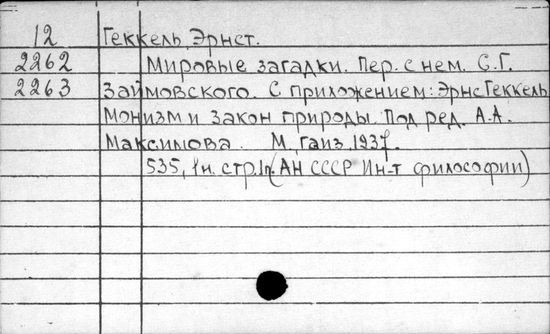 12 Геккель, Эрнст.
2262 Мировые загадки. Пер. с нем. С.Г.
2263 Займовского. С приложением: Эрнс Геккель
Монизм и закон природы. Под ред. А.А.
Максимова. М, Гаиз, 1937.
535, 1н. стр. 1п. (АН СССР Ин-т философии)